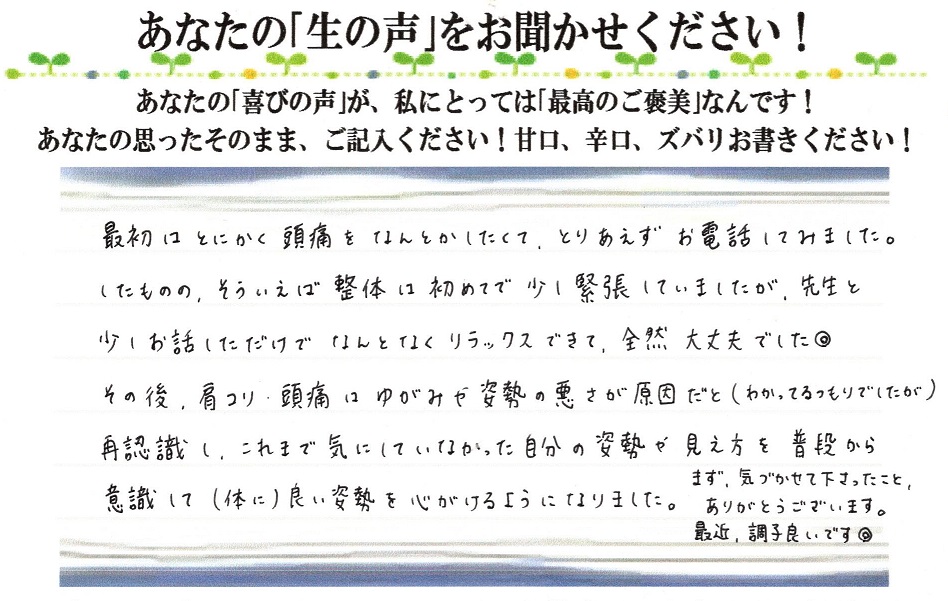 あなたの「生の声」をお聞かせください！
あなたの「喜びの声」が、私にとっては「最高のご褒美」なんです！
あなたの思ったそのまま、ご記入ください！甘口、辛口、ズバリお書きください！
最初はとにかく頭痛をなんとかしたくて、とりあえずお電話してみました。
したものの、そういえば整体は初めてで少し緊張していましたが、先生と
少しお話しただけでなんとなくリラックスできて、全然大丈夫でした◎
その後、肩コリ・頭痛はゆがみや姿勢の悪さが原因だと(わかってるつもりでしたが)
再認識し、これまで気にしていなかった自分の姿勢や見え方を普段から
意識して(体に)良い姿勢を心がけるようになりました。
まず、気づかせて下さったこと、
ありがとうございます。
最近、調子良いです◎